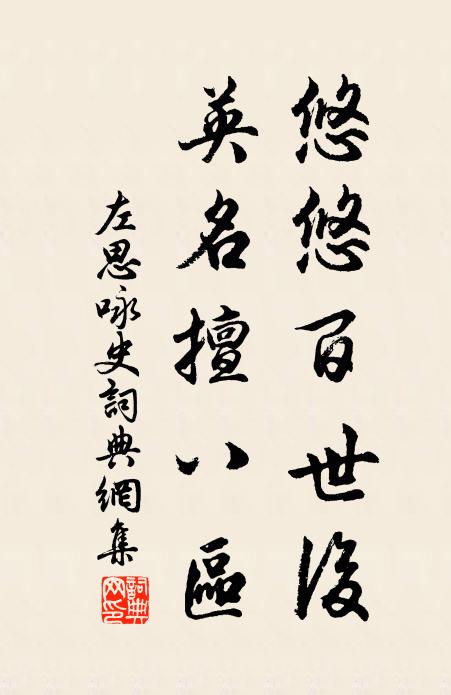 悠悠百世後
英名擅八區
左思咏史詞典網集
詞典網印